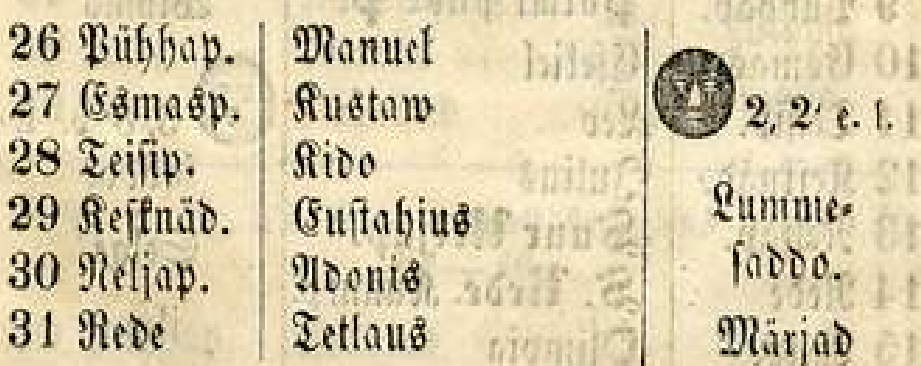 26 Pühhap. Manuel
27 Esmasp. Kustaw 2, 2' e. l.
28 Teisip. Kido
29 Kesknäd. Eustahius Lumme-
30 Neljap. Adonis saddo.
31 Rede Tetlaus Märjad